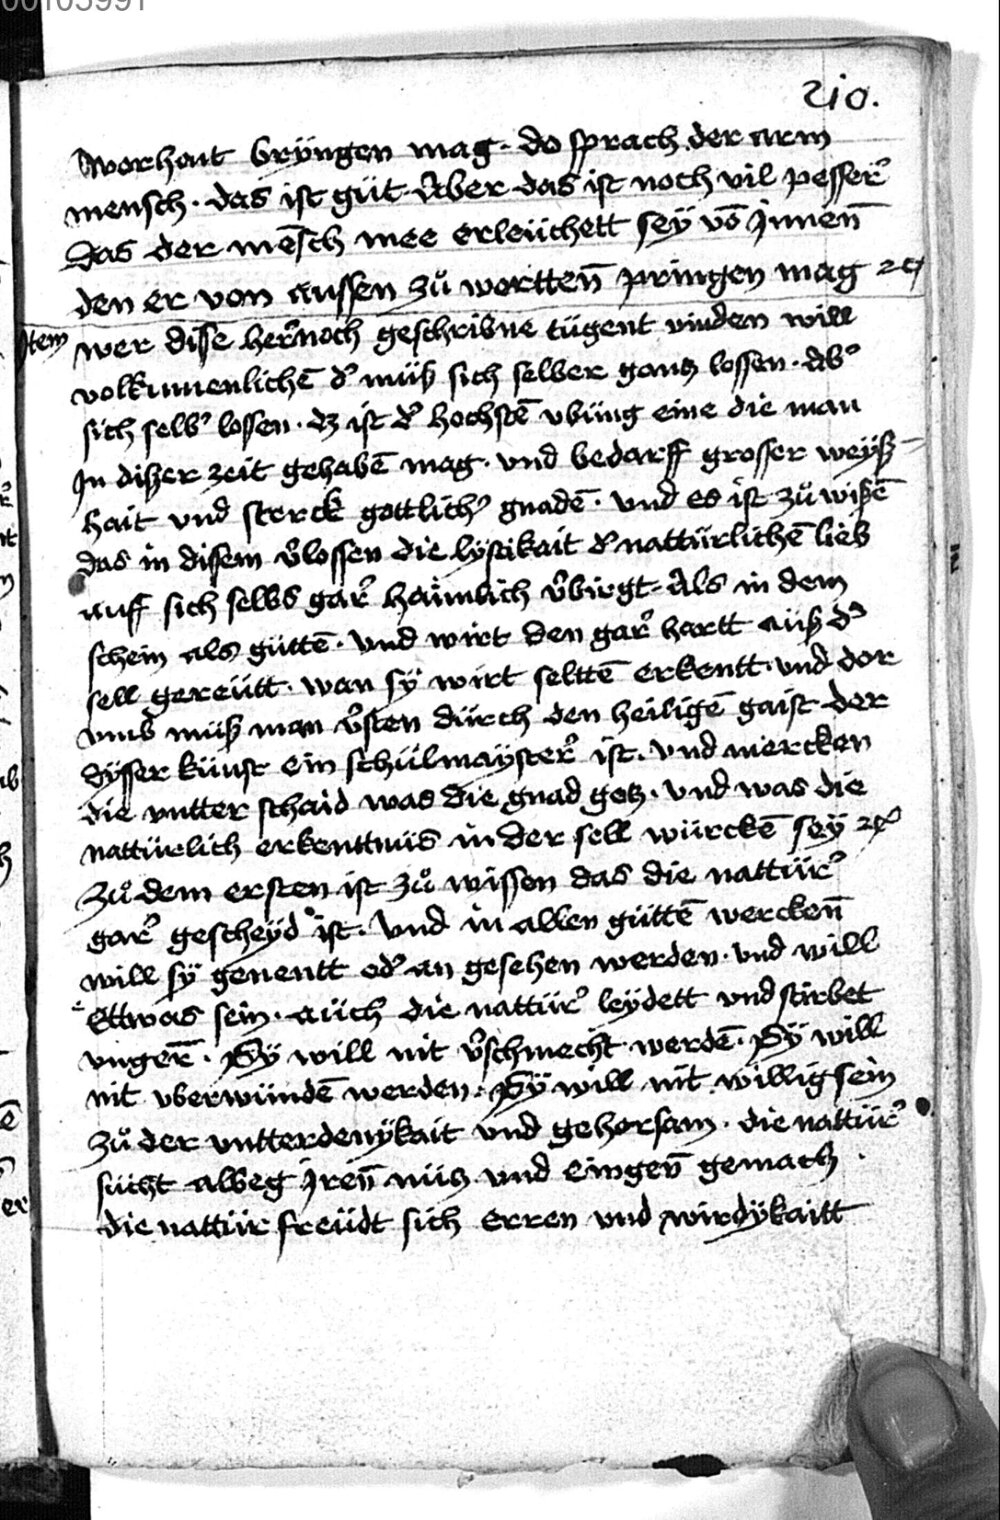 210.
worhait bryngen mag · do sprach der arm
mensch · das ist güt Aber das ist noch vil pesser᷑
Das der me᷑sch mee erleüchett sey vō Jnnen̄
den er von aussen zů wortten̄ pringen mag ꝛc
Jtem wer disse her᷑noch geschribne tügent vinden will
volkumenlichē d᷑ müß sich selber gantz lossen · ab᷑
sich selb᷑ lossen · dz ist d᷑ hochstē vbüng eine die man
Jn dißer zeit gehabē mag · vnd bedarff grosser weyß
hait vnd sterck gottlich᷑ gnadē · vnd es ist zů wißē
das in dissem v᷑lossen die lystikait d᷑ nattürlichē lieb
auff sich selbs gar᷑ haimlich v᷑birgt · Als in dem
schein als güttē · Vnd wirt den gar᷑ hartt auß d᷑
sell gereütt · wan sy wirt selttē erkentt · vnd dor
vmb müß man v᷑sten dürch den heiligē gaist der
dysser künst ein schülmayster᷑ ist · vnd mercken
die vntter schaid was die gnad gotz · vnd was die
nattürlich erkenttnüs in der sell würckē sey ꝛc
Zů dem ersten ist zů wissen das die nattür᷑
gar᷑ gescheyd ist · Vnd in allen güttē wercken̄
will sy genentt od᷑ an gesehen werden · vnd will
Ettwas sein · aüch die nattür᷑ leydett vnd stirbet
vnger̄ · Sy will nit v᷑schmecht werdē · Sy will
nit vberwündē werden · Sy will nit willig sein
zů der vntterdenykait vnd gehorsam · die nattür᷑
sücht alweg Jren̄ nütz vnd eingen̄ gemach
die nattür freüdt sich erren vnd wirdykaitt